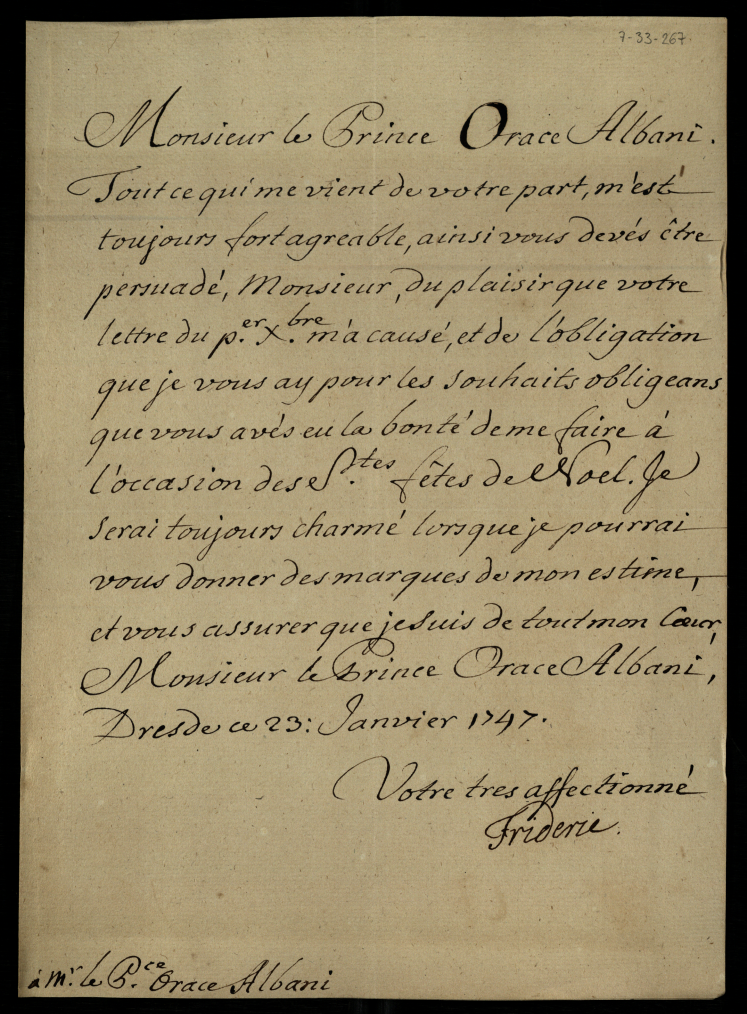 7-33-267.
Monsieur le Prince Orace Albani.
Tout ce qui me vient de votre part, m'est
toujours fort agreable, ainsi vous devés être
persuadé, Monsieur, du plaisir que votre
lettre du p.er X.bre m'a causé, et de l'obligation
que je vous ay pour les souhaits obligeans
que vous avés eu la bonté de me faire à
l'occasion des S.tes fêtes de Noel. Je
serai toujours charmé lorsque je pourrai
vous donner des marques de mon estime,
et vous assurer que je suis de tout mon Cœur,
Monsieur le Prince Orace Albani,
Dresde ce 23: Janvier 1747.
Votre tres affectionné
Frideric.
à Mr. le P.ce Orace Albani